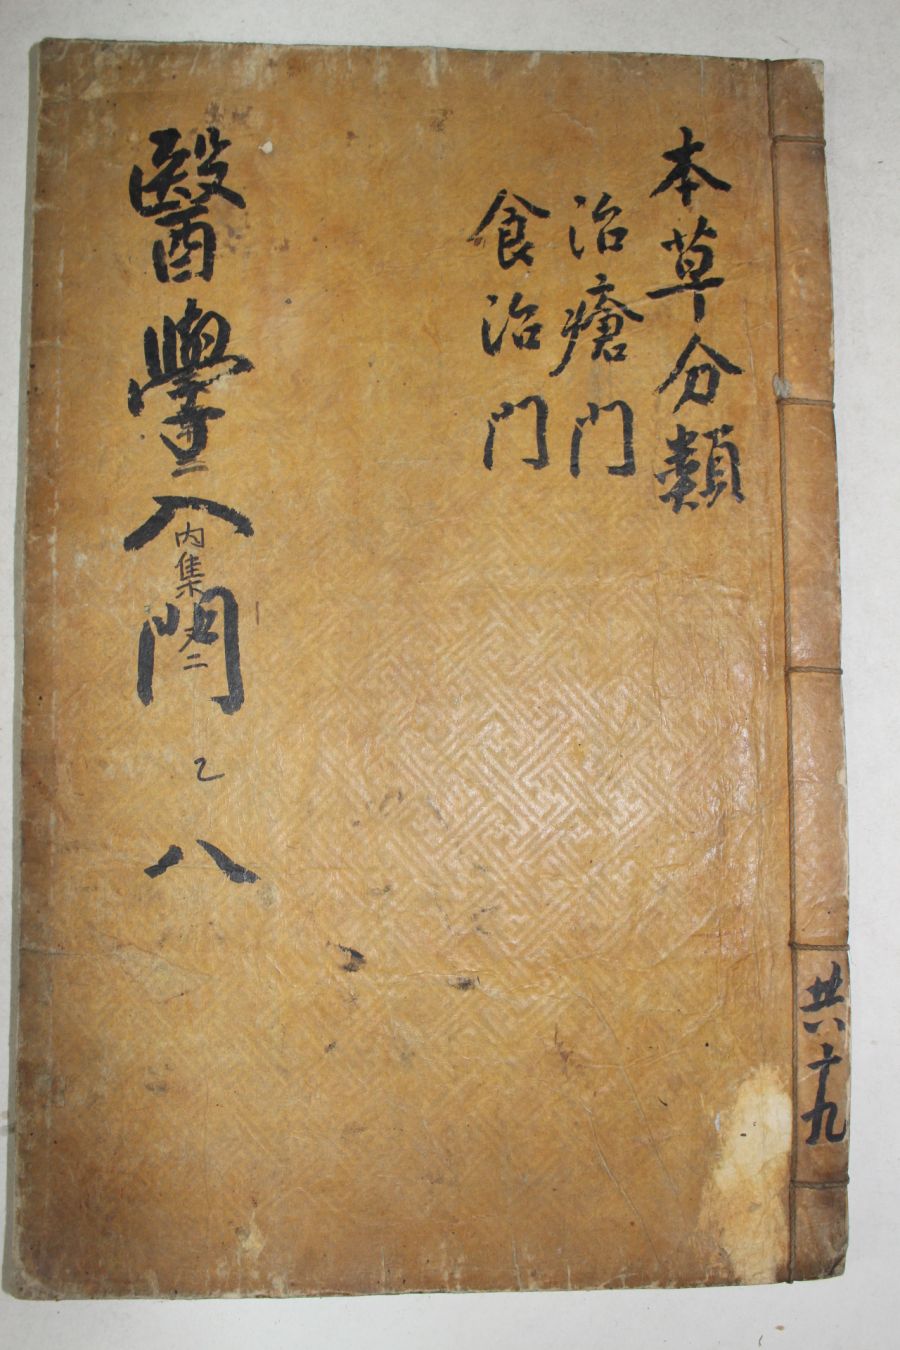 本草分類
治瘡門
食治門
醫學入門
二
內集
二
乙
八
共十九